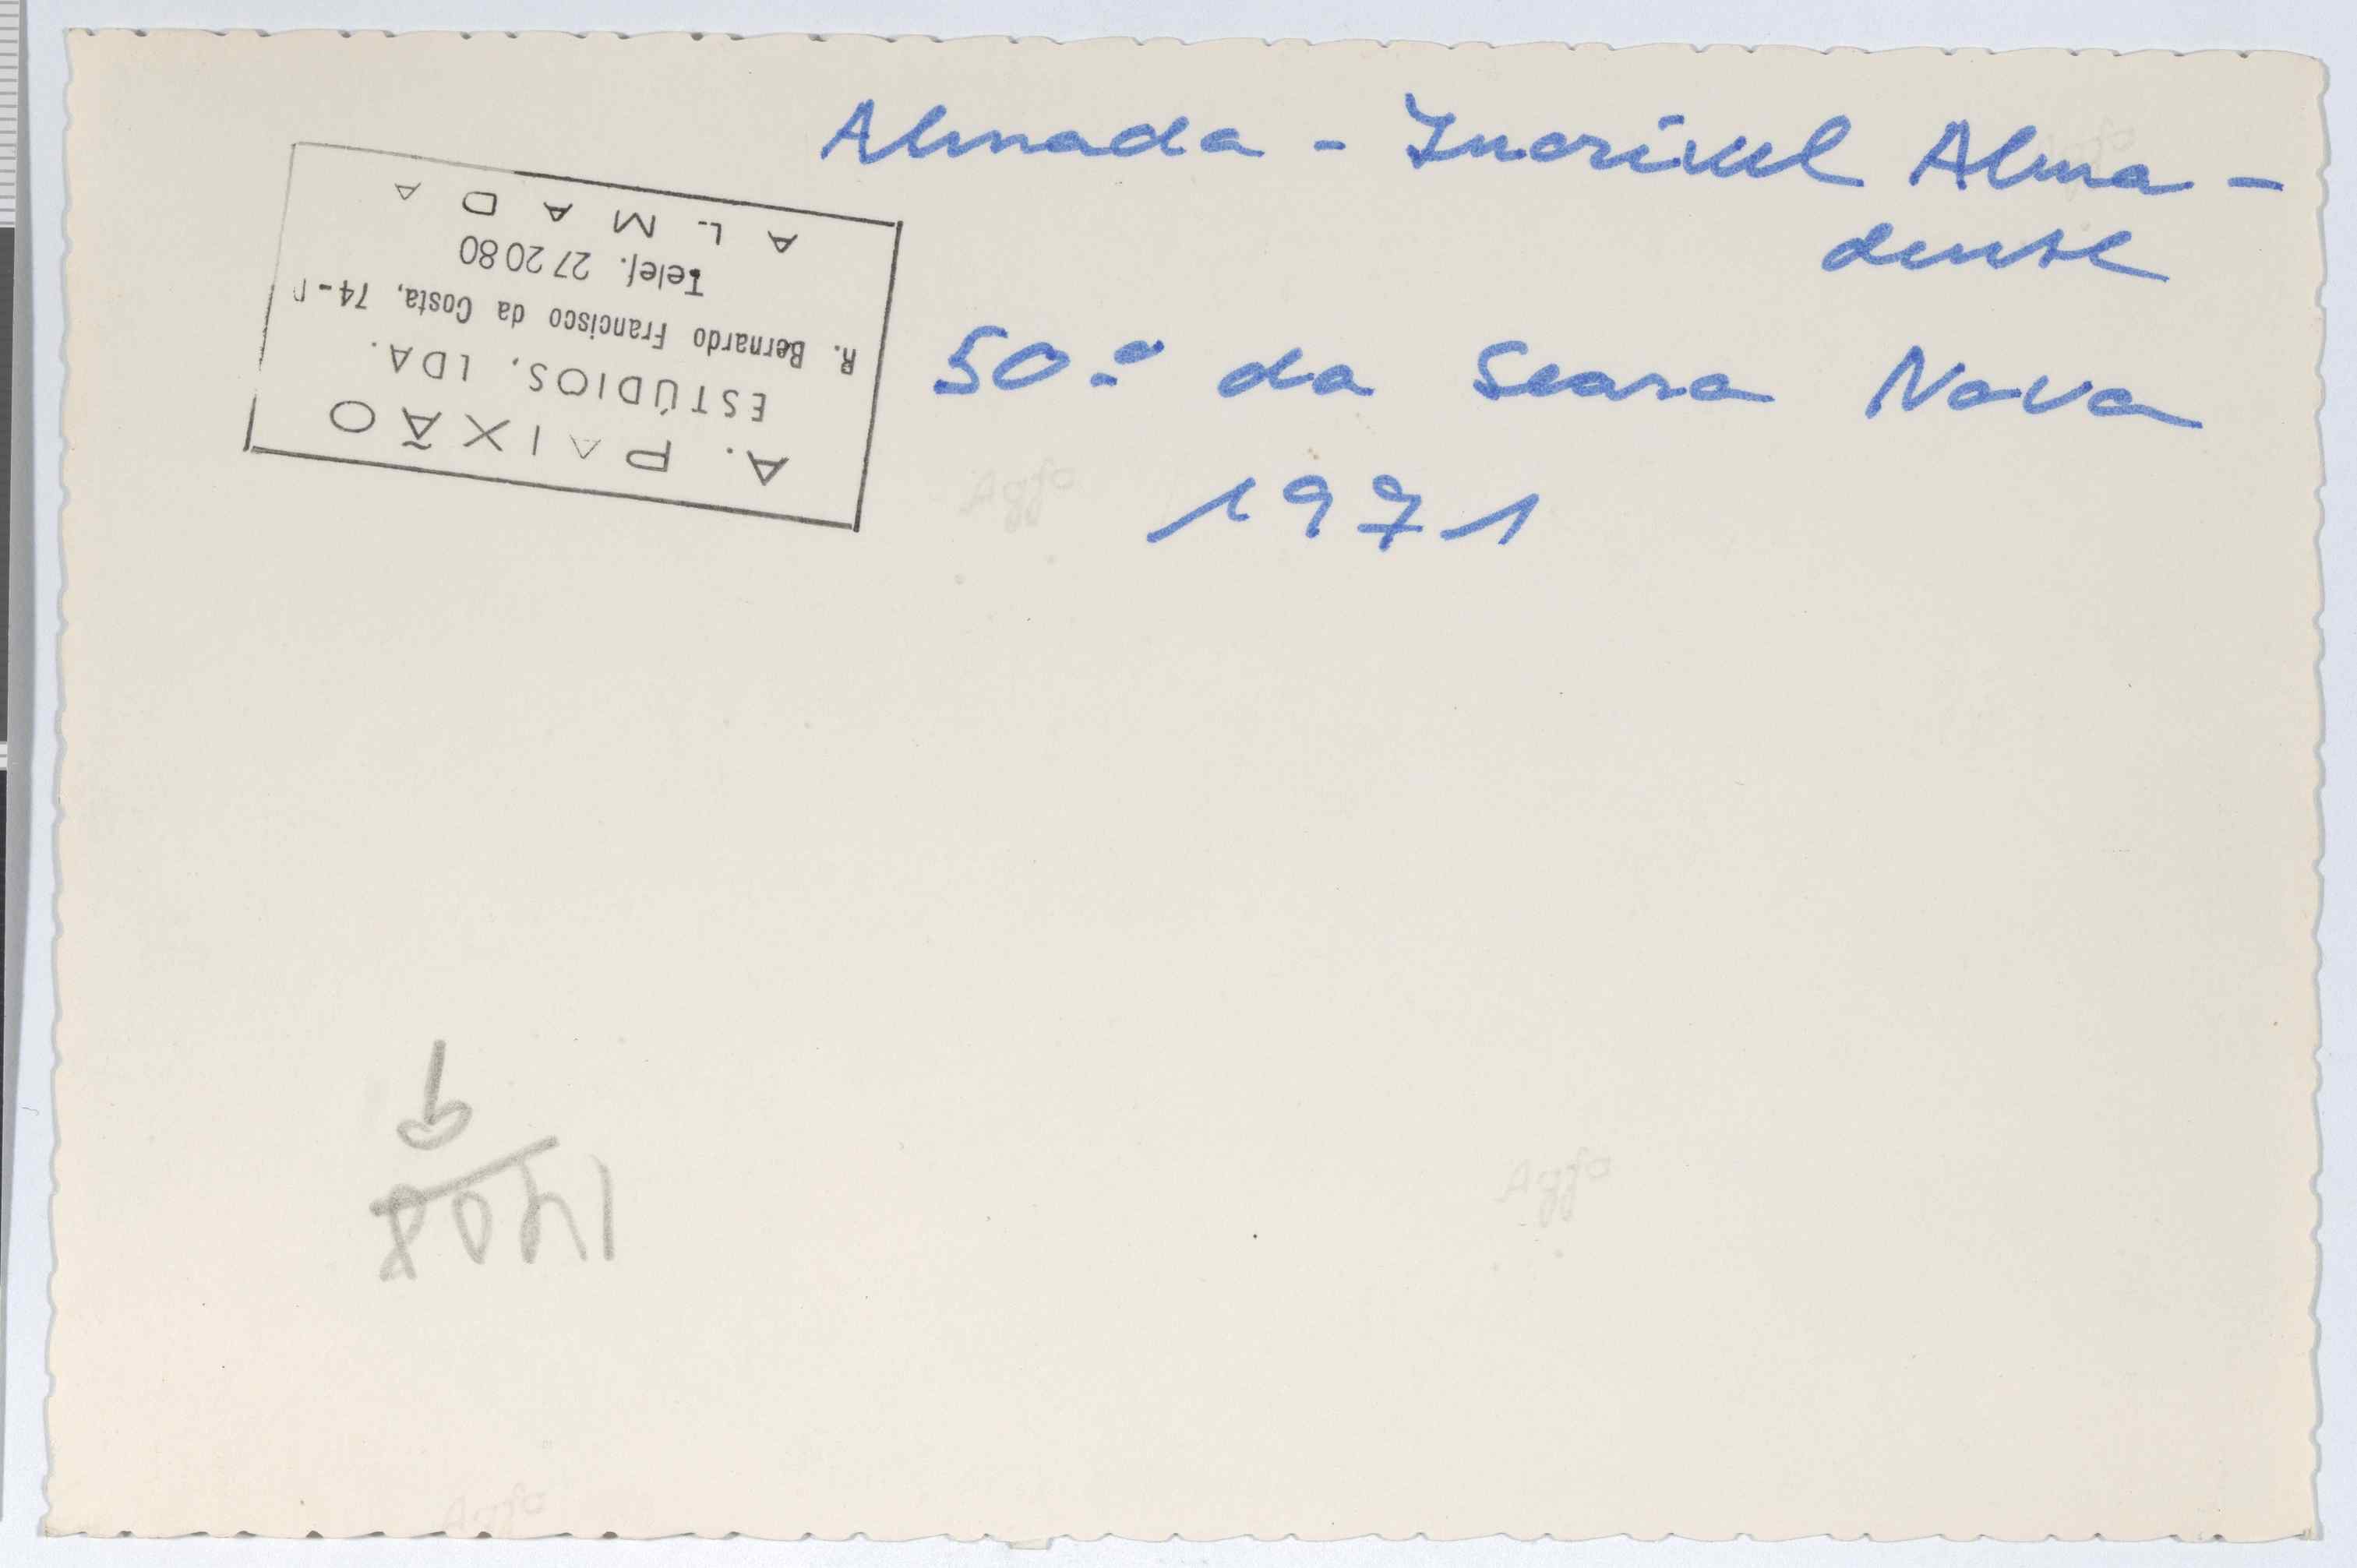 Almada - Incrível Alma-
dense
50.º da Seara Nova
1971
A. PAIXÃO
ESTÚDIOS, LDA.
R. Bernardo Francisco da Costa, 74-
Telef. 27 20 80
ALMADA
Agfa
Agfa
Agfa